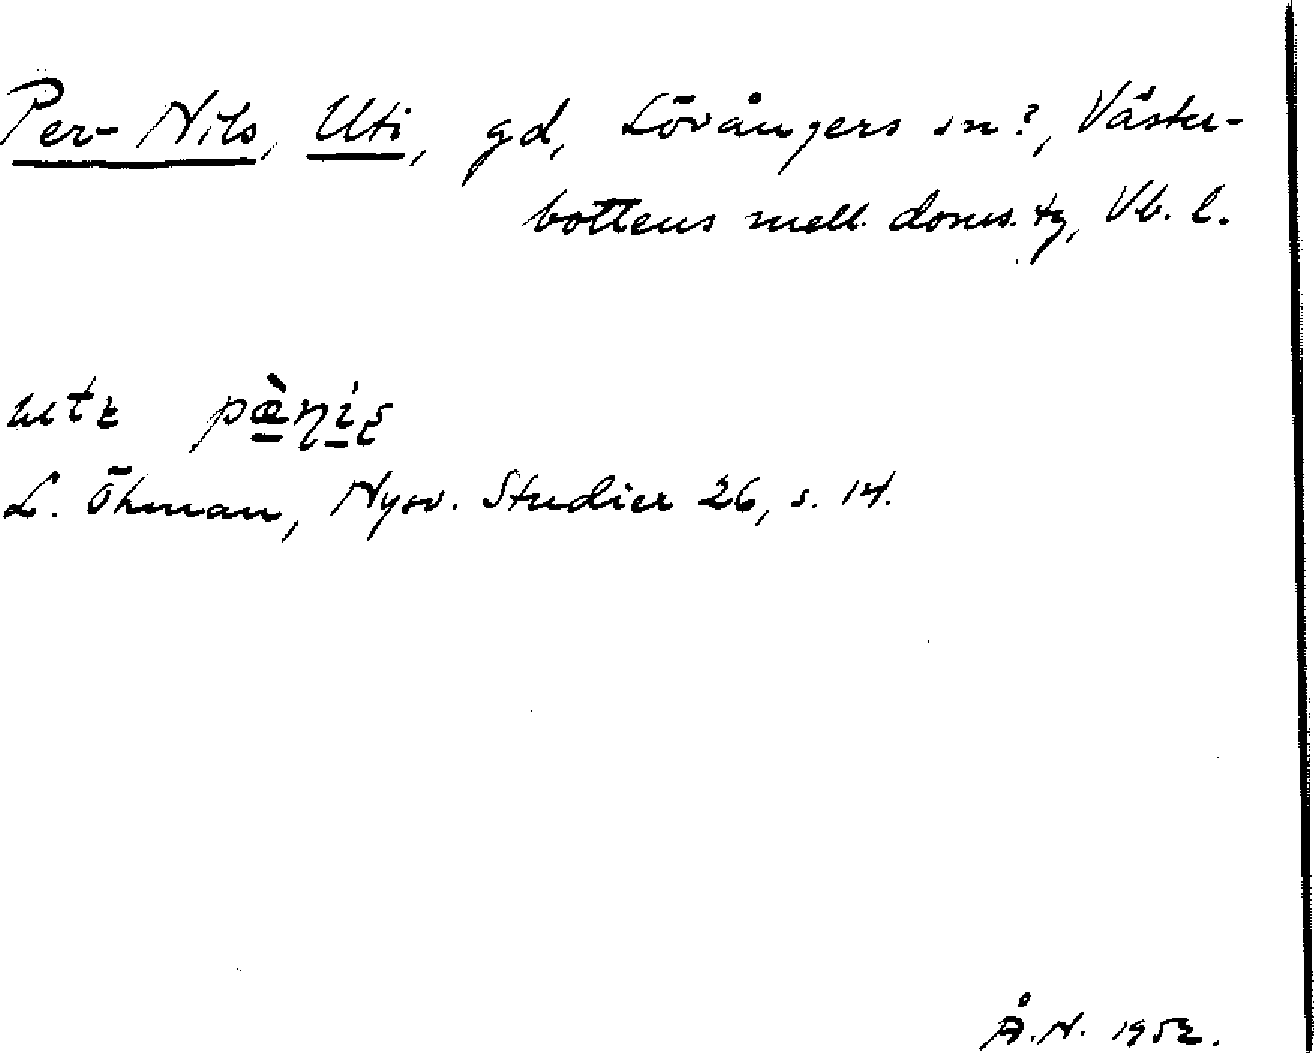 Per-Nils, Uti, gd, Lövångers sn?, Väster-
bottens mell. doms. tg, Vb. l.
utɩ pæ̀ṇi̠s̨
L. Öhman, Nysv. Studier 26, s. 14.
Å.N. 1952.